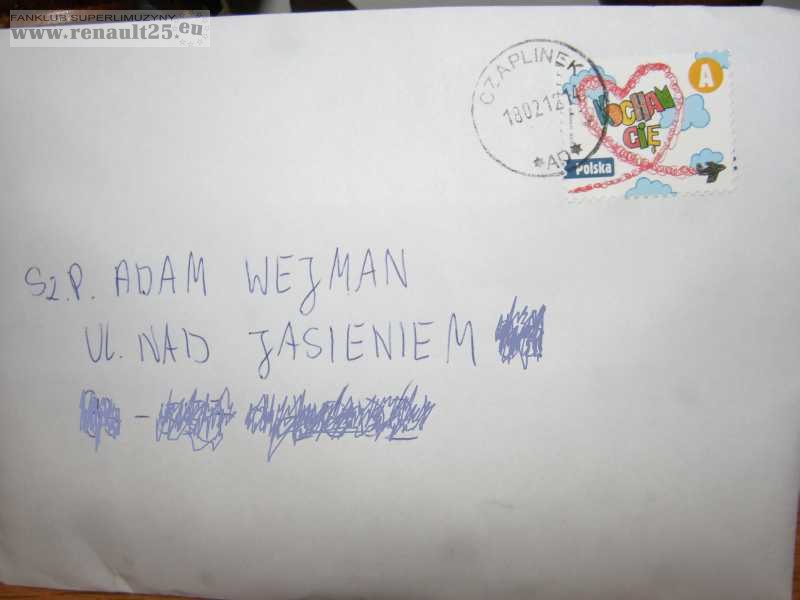 FANKLUB SUPERLIMUZYNY
www.renault25.eu
CZAPLINEK
18021214
*AD*
A
KOCHAM
CIĘ
Polska
Sz.P. ADAM WEJMAN
UL. NAD JASIENIEM